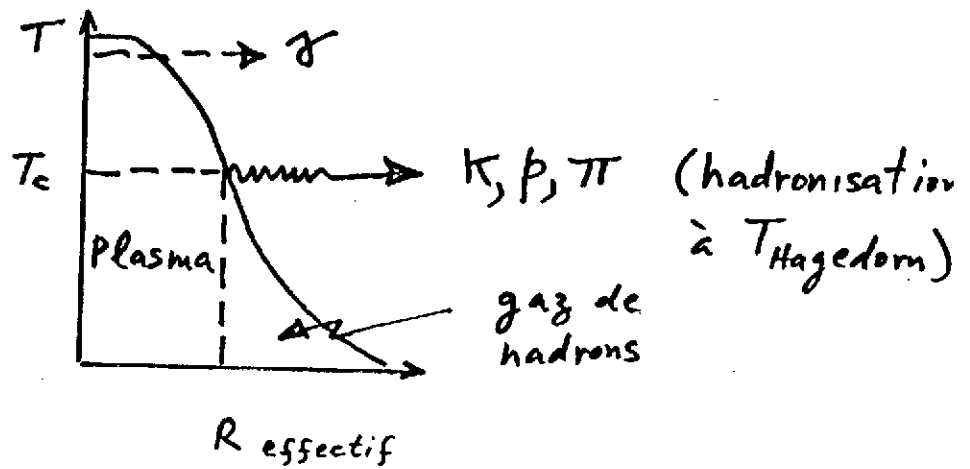 T
γ
Tc
K, p, π (hadronisation
à T Hagedorn)
Plasma
gaz de
hadrons
R effectif